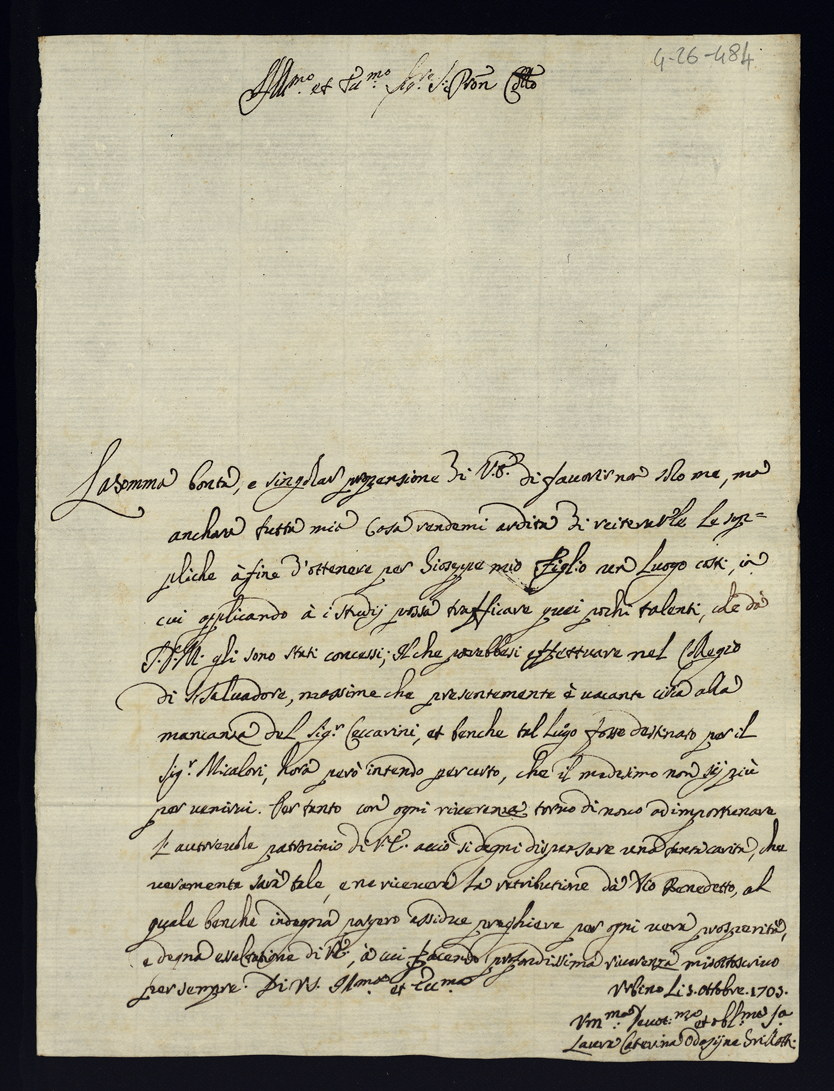 4-26-484
Ill.mo et Ecc.mo Sig.re S. Pron Coll.mo
La somma bontà, e singolar propensione di V.E. di favorir non solo me, mà
anchora tutta mia Casa rendemi ardita di reiterarle le sup=
pliche à fine d'ottenere per Gioseppe mio Figlio un Luogo costì, in
cui applicando à i studij possa trafficare quei pochi talenti, che dà
S.D.M. gli sono stati concessi; Il che potrebbesi effettuare nel Collegio
di S. Salvadore, massime che presentemente è vacante circa alla
mancanza del Sig.r Ceccarini, et benche tal luogo fosse destinato per il
Sig.r Micalori, hora però intendo per certo, che il medesimo non sij più
per venirvi. Per tanto con ogni riverenza torno di novo ad importunare
l'autorevole patrocinio di V.E. acciò si degni dispensare una tanta carità, che
veramente sarà tale, e ne riceverà la retributione dà Dio Benedetto, al
quale benche indegna porgerò assidue preghiere per ogni vera prosperità,
e degna essaltatione di V.E., à cui facendo profondissima riverenza mi sottoscrivo
per sempre. Di V.S. Ill.ma et Ecc.ma
Urbino Li 5. ottobre. 1703.
Um.ma Devot.ma et obl.ma Ser.a
Laura Caterina Odasij